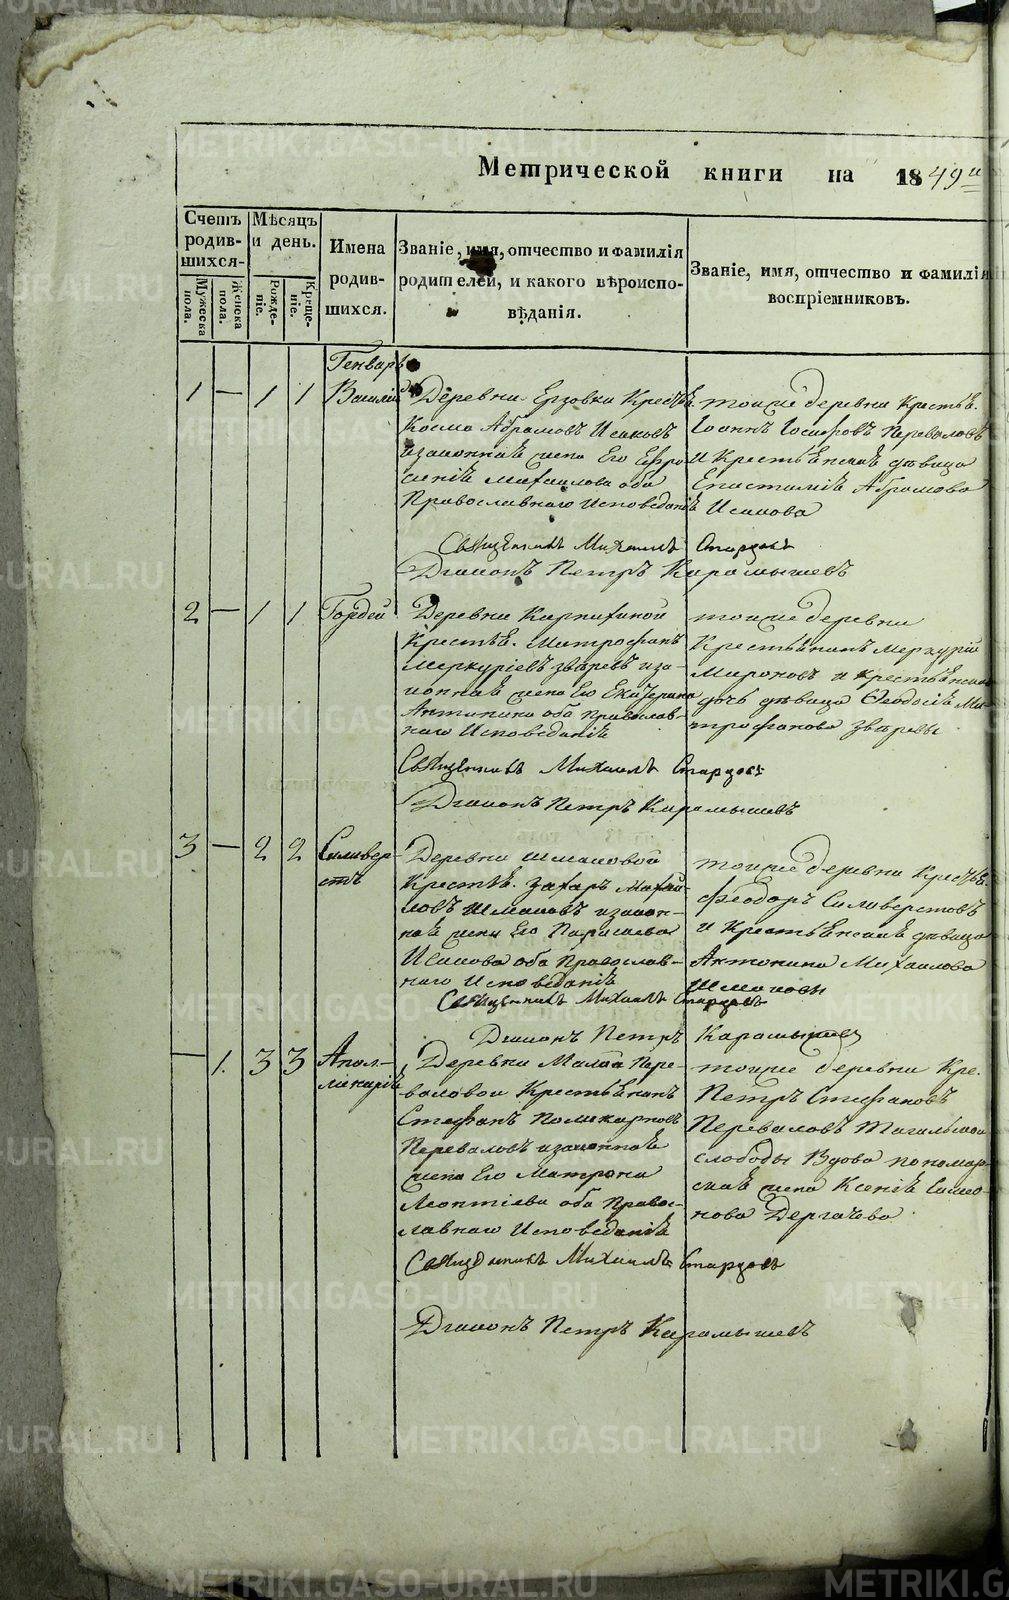 Метрической книги на 1849 и
Счетъ родив-шихся.
Мѣсяцъ и день.
Имена родив-шихся.
Званіе, имя, отчество и фамилія родителей, и какого вѣроиспо-вѣданія.
Званіе, имя, отчество и фамилія воспріемниковъ.
Мужеска пола.
Женска пола.
Рожде-ніе.
Креще-ніе.
Генварь
1 — 1 1 Василій
Деревни Ерзовки Крестьѣ.
Косма Абрамовъ Исаковъ
изаконнаѣ жена Его Ефро-
синіѣ Михаилова оба
Православнаго Исповеданіѣ
тоиже деревни Крестьѣ.
Іоаннъ Іосифовъ Переваловъ
и Крестьѣнскаѣ дѣвица
Епистиміѣ Абрамова
Исакова
Священникъ Михаилъ Старцовъ
Диаконъ Петръ Карамышевъ
2 — 1 1 Гордей
Деревни Карпихиной
Крестьѣ. Митрофанъ
Меркуріевъ Звѣревъ иза-
коннаѣ жена Его Екатерина
Антипина оба православ-
наго Исповеданіѣ
тоиже деревни
Крестьѣнинъ Меркурій
Мироновъ и крестьѣнскаѣ
дочь дѣвица Ѳеодосіѣ Ми-
трофанова Звѣревы
Священникъ Михаилъ Старцовъ
Диаконъ Петръ Карамышевъ
3 — 2 2 Силивер-
стъ
Деревни Шмаковой
Крестьѣ. Захаръ Михаи-
ловъ Шмаковъ изакон-
наѣ жена Его Параскева
Исакова оба Православ-
наго Исповеданіѣ
тоиже деревни Крестьѣ.
Феодоръ Силиверстовъ
и Крестьѣнскаѣ дѣвица
Антонина Михаилова
Шмаковы
Священникъ Михаилъ Старцовъ
Диаконъ Петръ Карамышевъ
— 1. 3 3 Апол-
линаріѣ
Деревни Малой Пере-
валовой Крестьѣнинъ
Стефанъ Поликарповъ
Переваловъ изаконнаѣ
жена Его Матрона
Леонтіева оба Право-
славнаго Исповеданіѣ
тоиже деревни Кре.
Петръ Стефановъ
Переваловъ Тагильской
слободы Вдова пономар-
скаѣ жена Ксеніѣ Симео-
нова Дергачева
Священникъ Михаилъ Старцовъ
Диаконъ Петръ Карамышевъ
METRIKI.GASO-URAL.RU